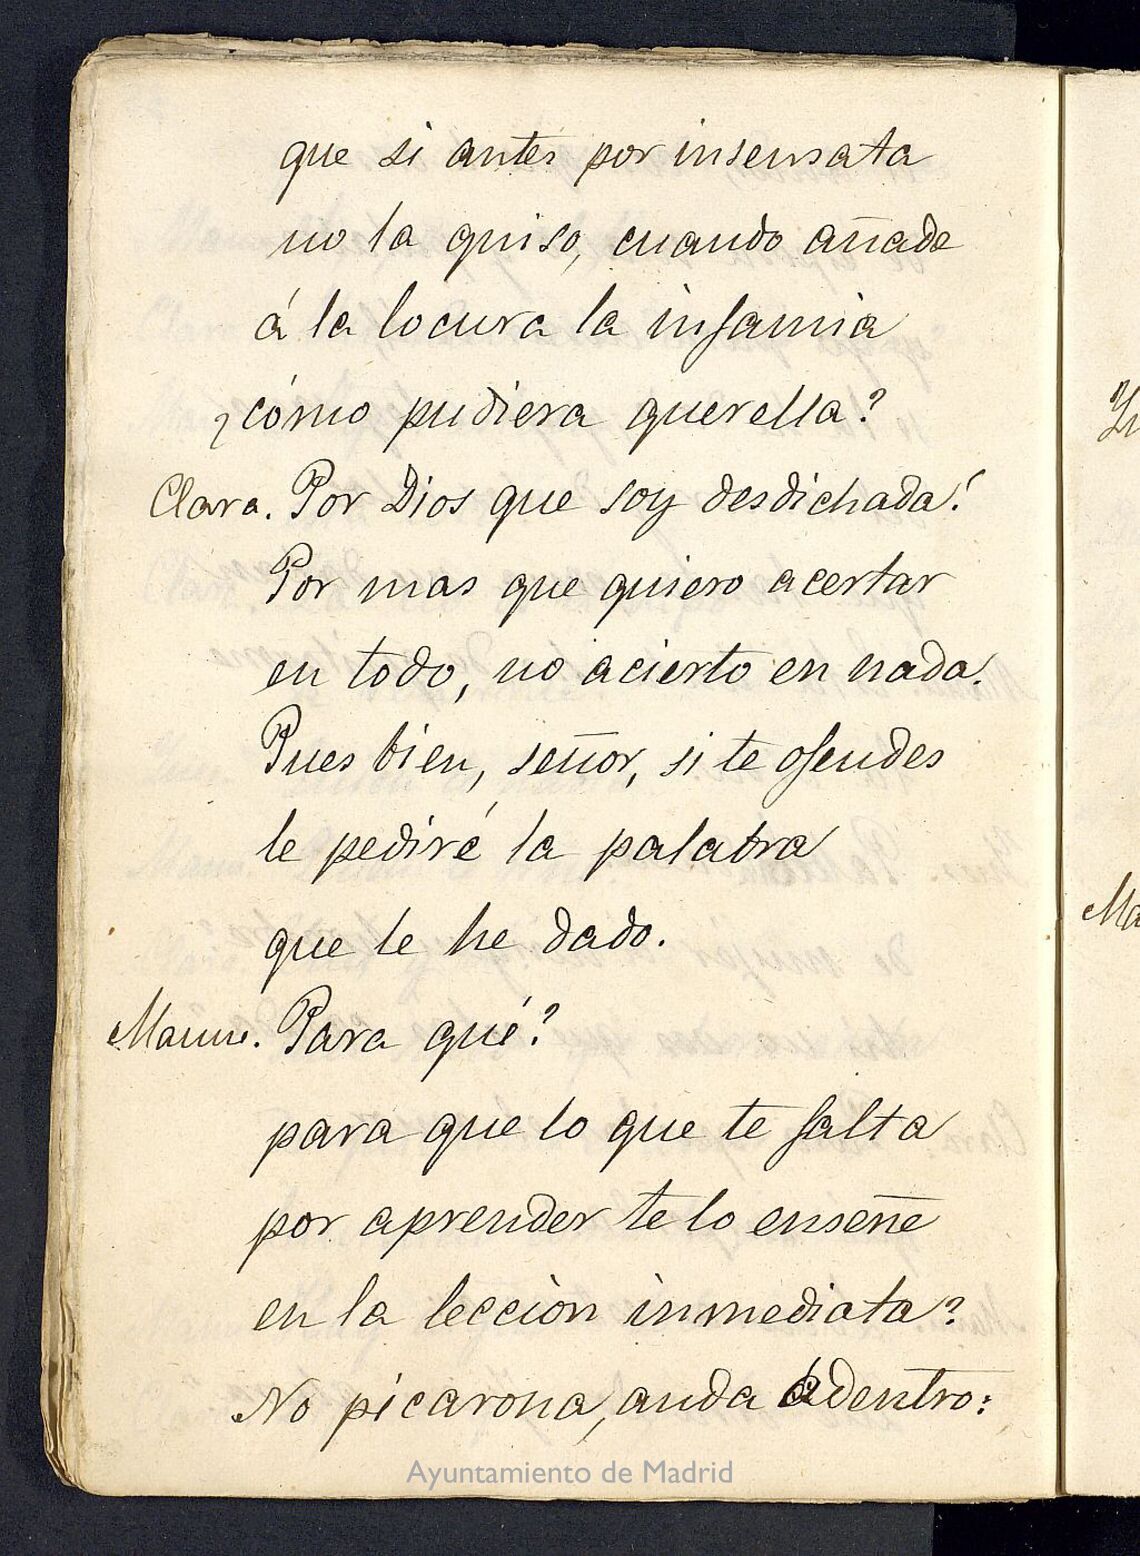 que si antes por insensata
no la quiso, cuando añade
á la locura la infamia
¿cómo pudiera querella?
Clara. Por Dios que soy desdichada!
Por mas que quiero acertar
en todo, no acierto en nada.
Pues bien, señor, si te ofendes
le pediré la palabra
que le he dado.
Para qué?
para que lo que te falta
por aprender te lo enseñe
en la leccion inmediata?
No picarona, anda adentro:
Ayuntamiento de Madrid